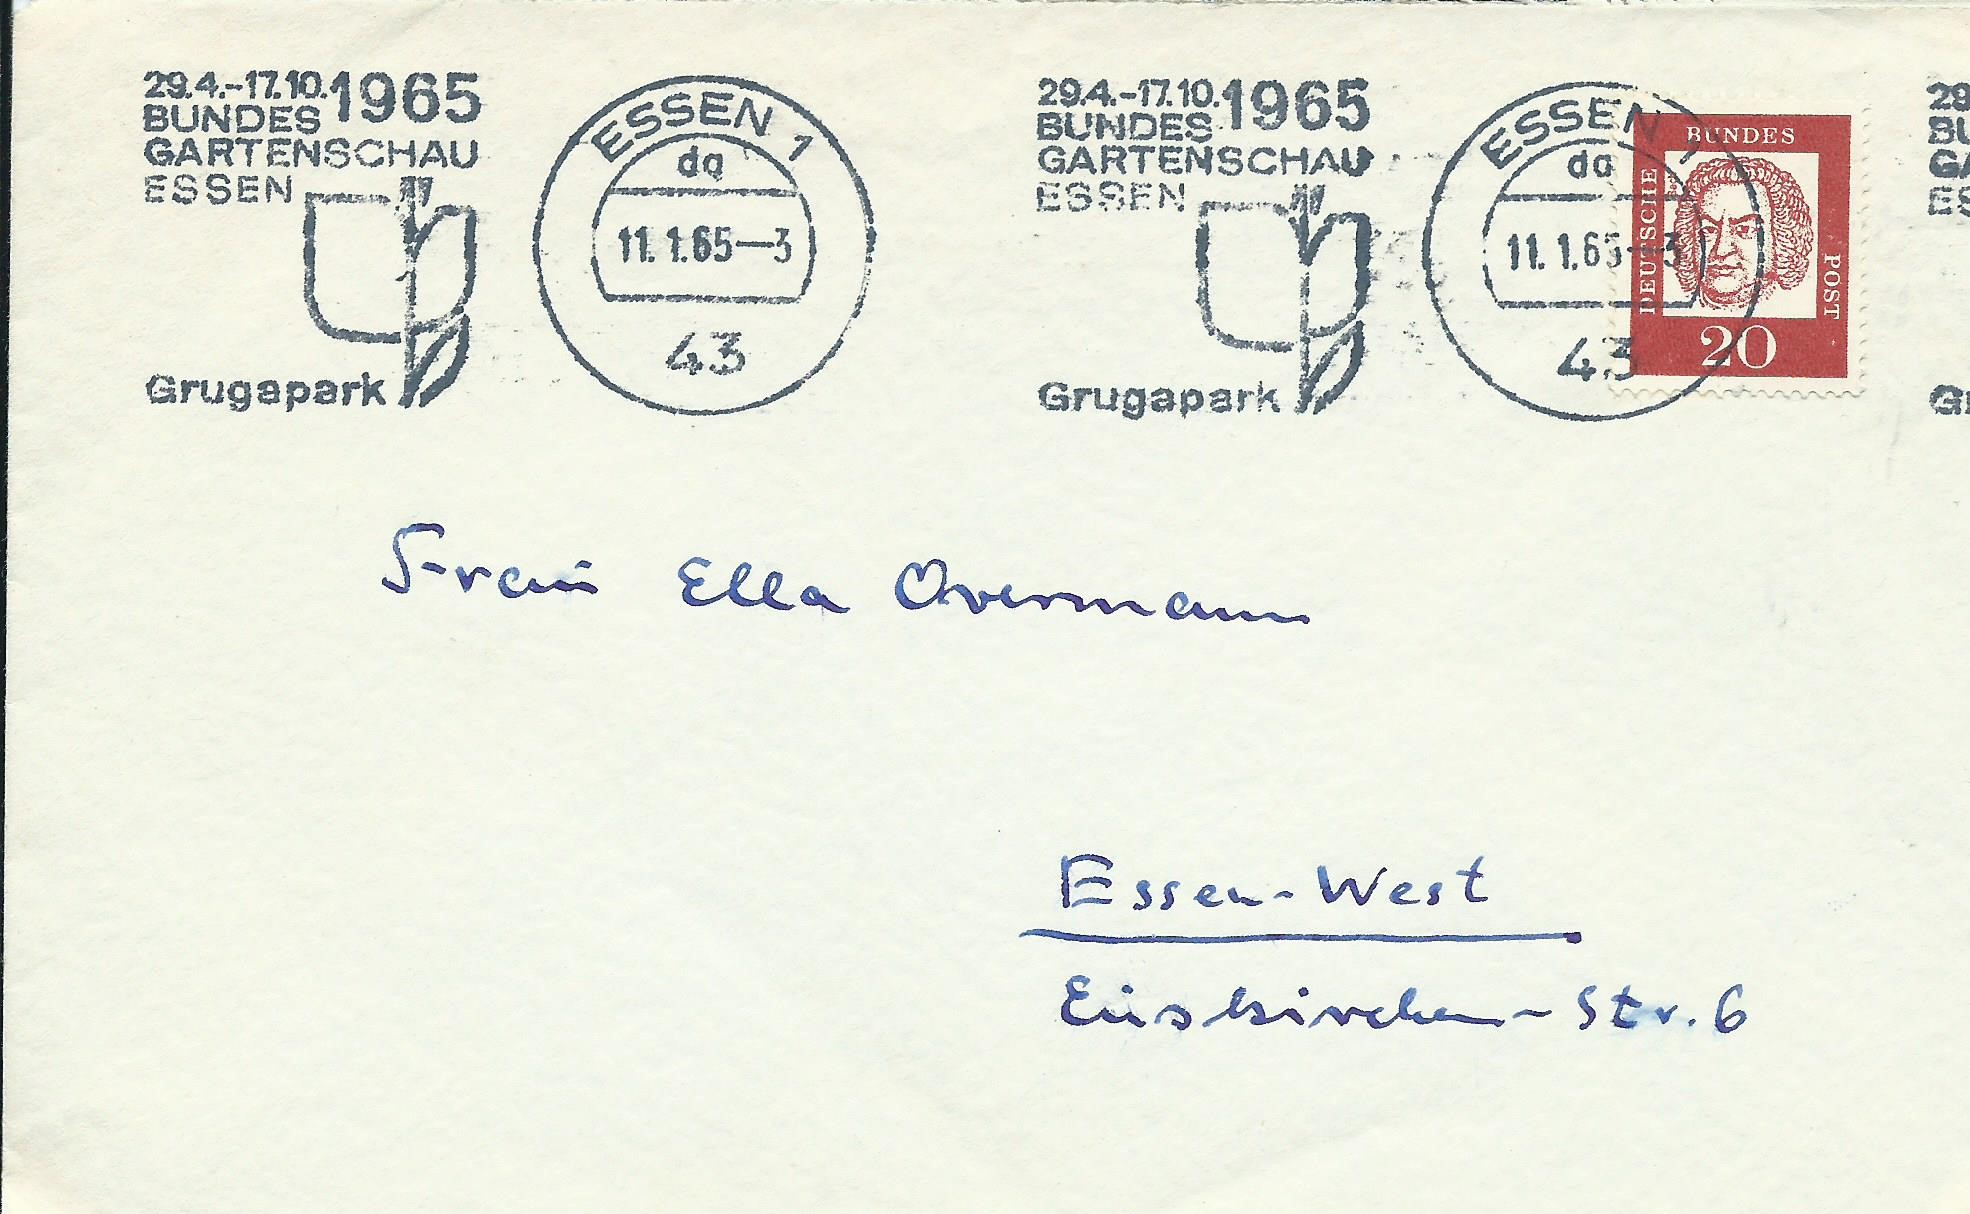 29.4.-17.10.1965
BUNDES
GARTENSCHAU
ESSEN
Grugapark
ESSEN 1
da
11.1.65-3
43
29.4.-17.10.1965
BUNDES
GARTENSCHAU
ESSEN
Grugapark
ESSEN 1
da
11.1.65-3
43
DEUTSCHE
BUNDES
POST
20
29
BU
GA
ES
Gr
Frau Ella Overmann
Essen-West
Euskirchen-Str. 6